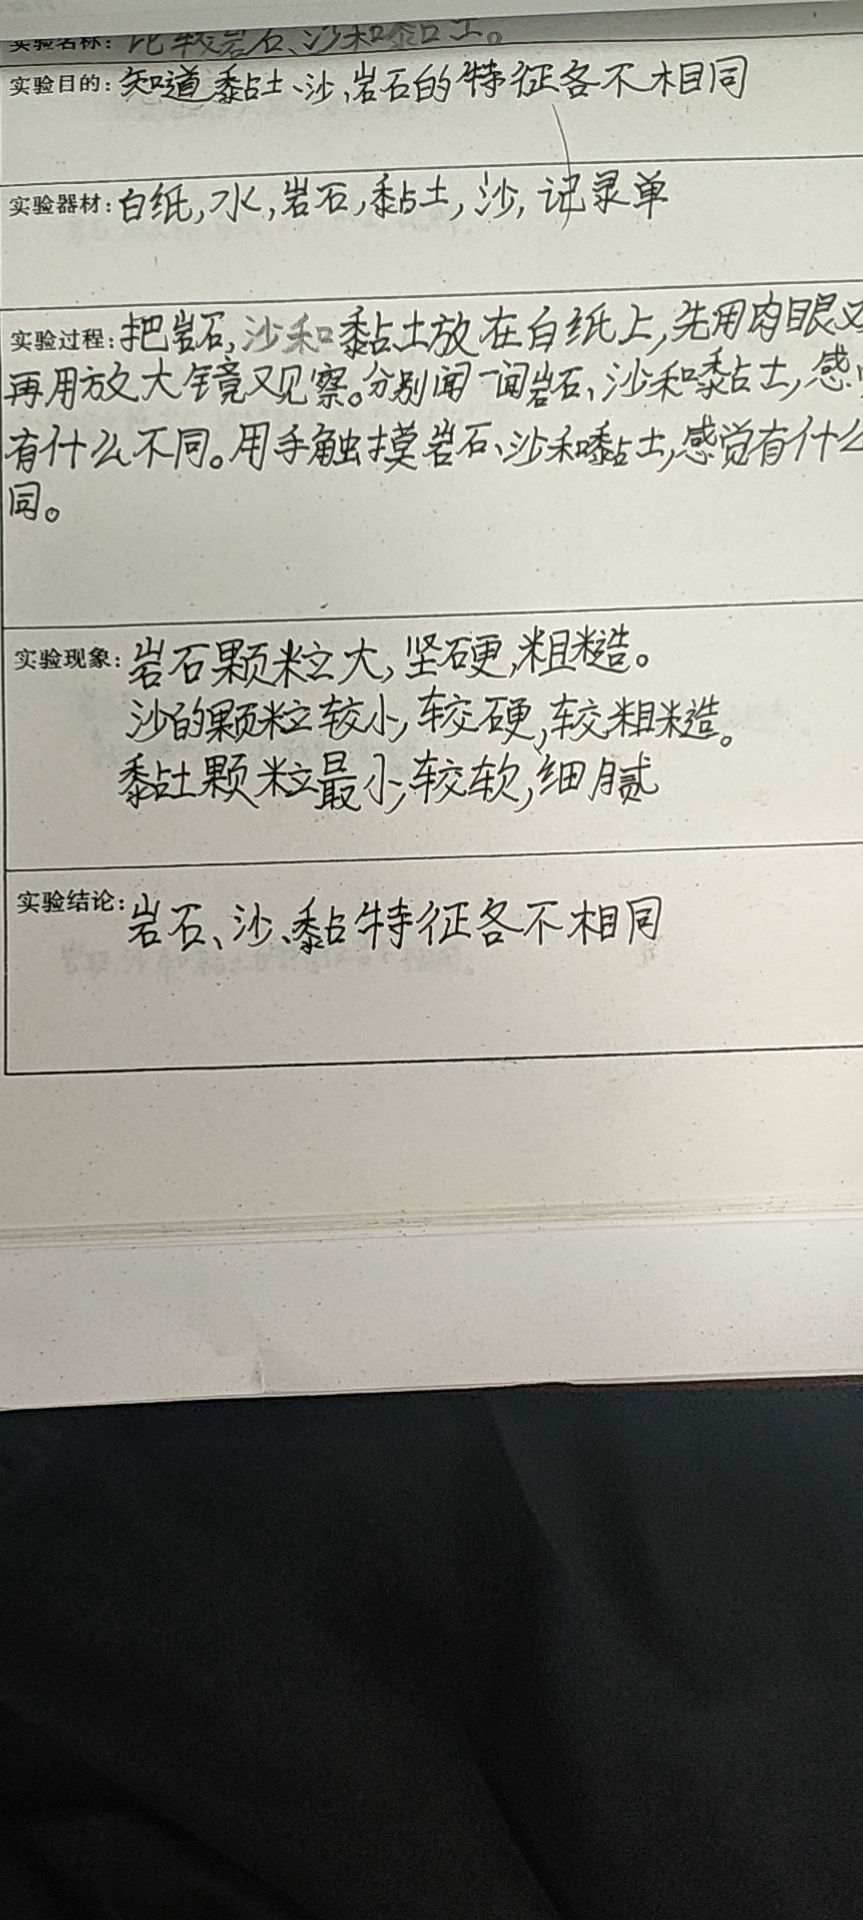 实验名称：比较岩石、沙和黏土。
实验目的：知道黏土、沙、岩石的特征各不相同
实验器材：白纸，水，岩石，黏土，沙，记录单
实验过程：把岩石，沙和黏土放在白纸上，先用肉眼
再用放大镜观察。分别闻一闻岩石、沙和黏土，感
有什么不同。用手触摸岩石、沙和黏土，感觉有什么
同。
实验现象：岩石颗粒大，坚硬，粗糙。
沙的颗粒较小，较硬，较粗糙。
黏土颗粒最小，较软，细腻
实验结论：岩石、沙、黏特征各不相同